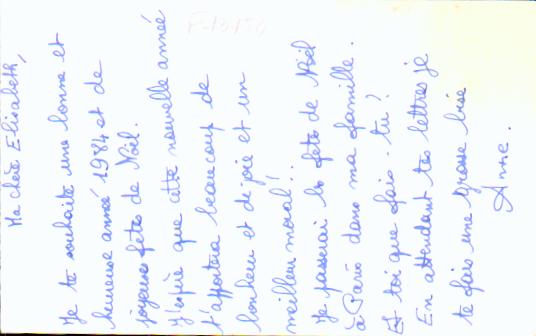 Ma chère Elisabeth,
Je te souhaite une bonne et
heureuse année 1984 et de
joyeuses fêtes de Noël.
J'espère que cette nouvelle année
t'apportera beaucoup de
bonheur et de joie et un
meilleur moral!.
Je passerai les fêtes de Noël
à Paris dans ma famille.
Et toi que fais-tu?
En attendant tes lettres je
te fais une grosse bise
Anne.